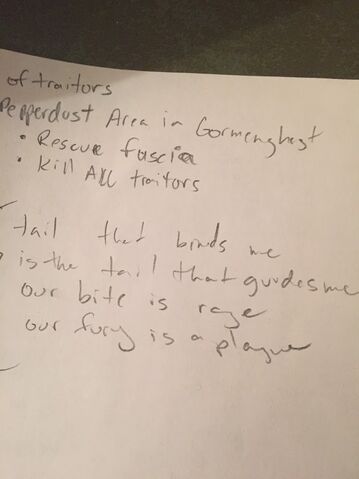 of traitors
Pepperdust Area in Gormenghast
• Rescue fascia
• Kill All traitors
tail that binds me
is the tail that guides me
our bite is rage
our fury is a plague